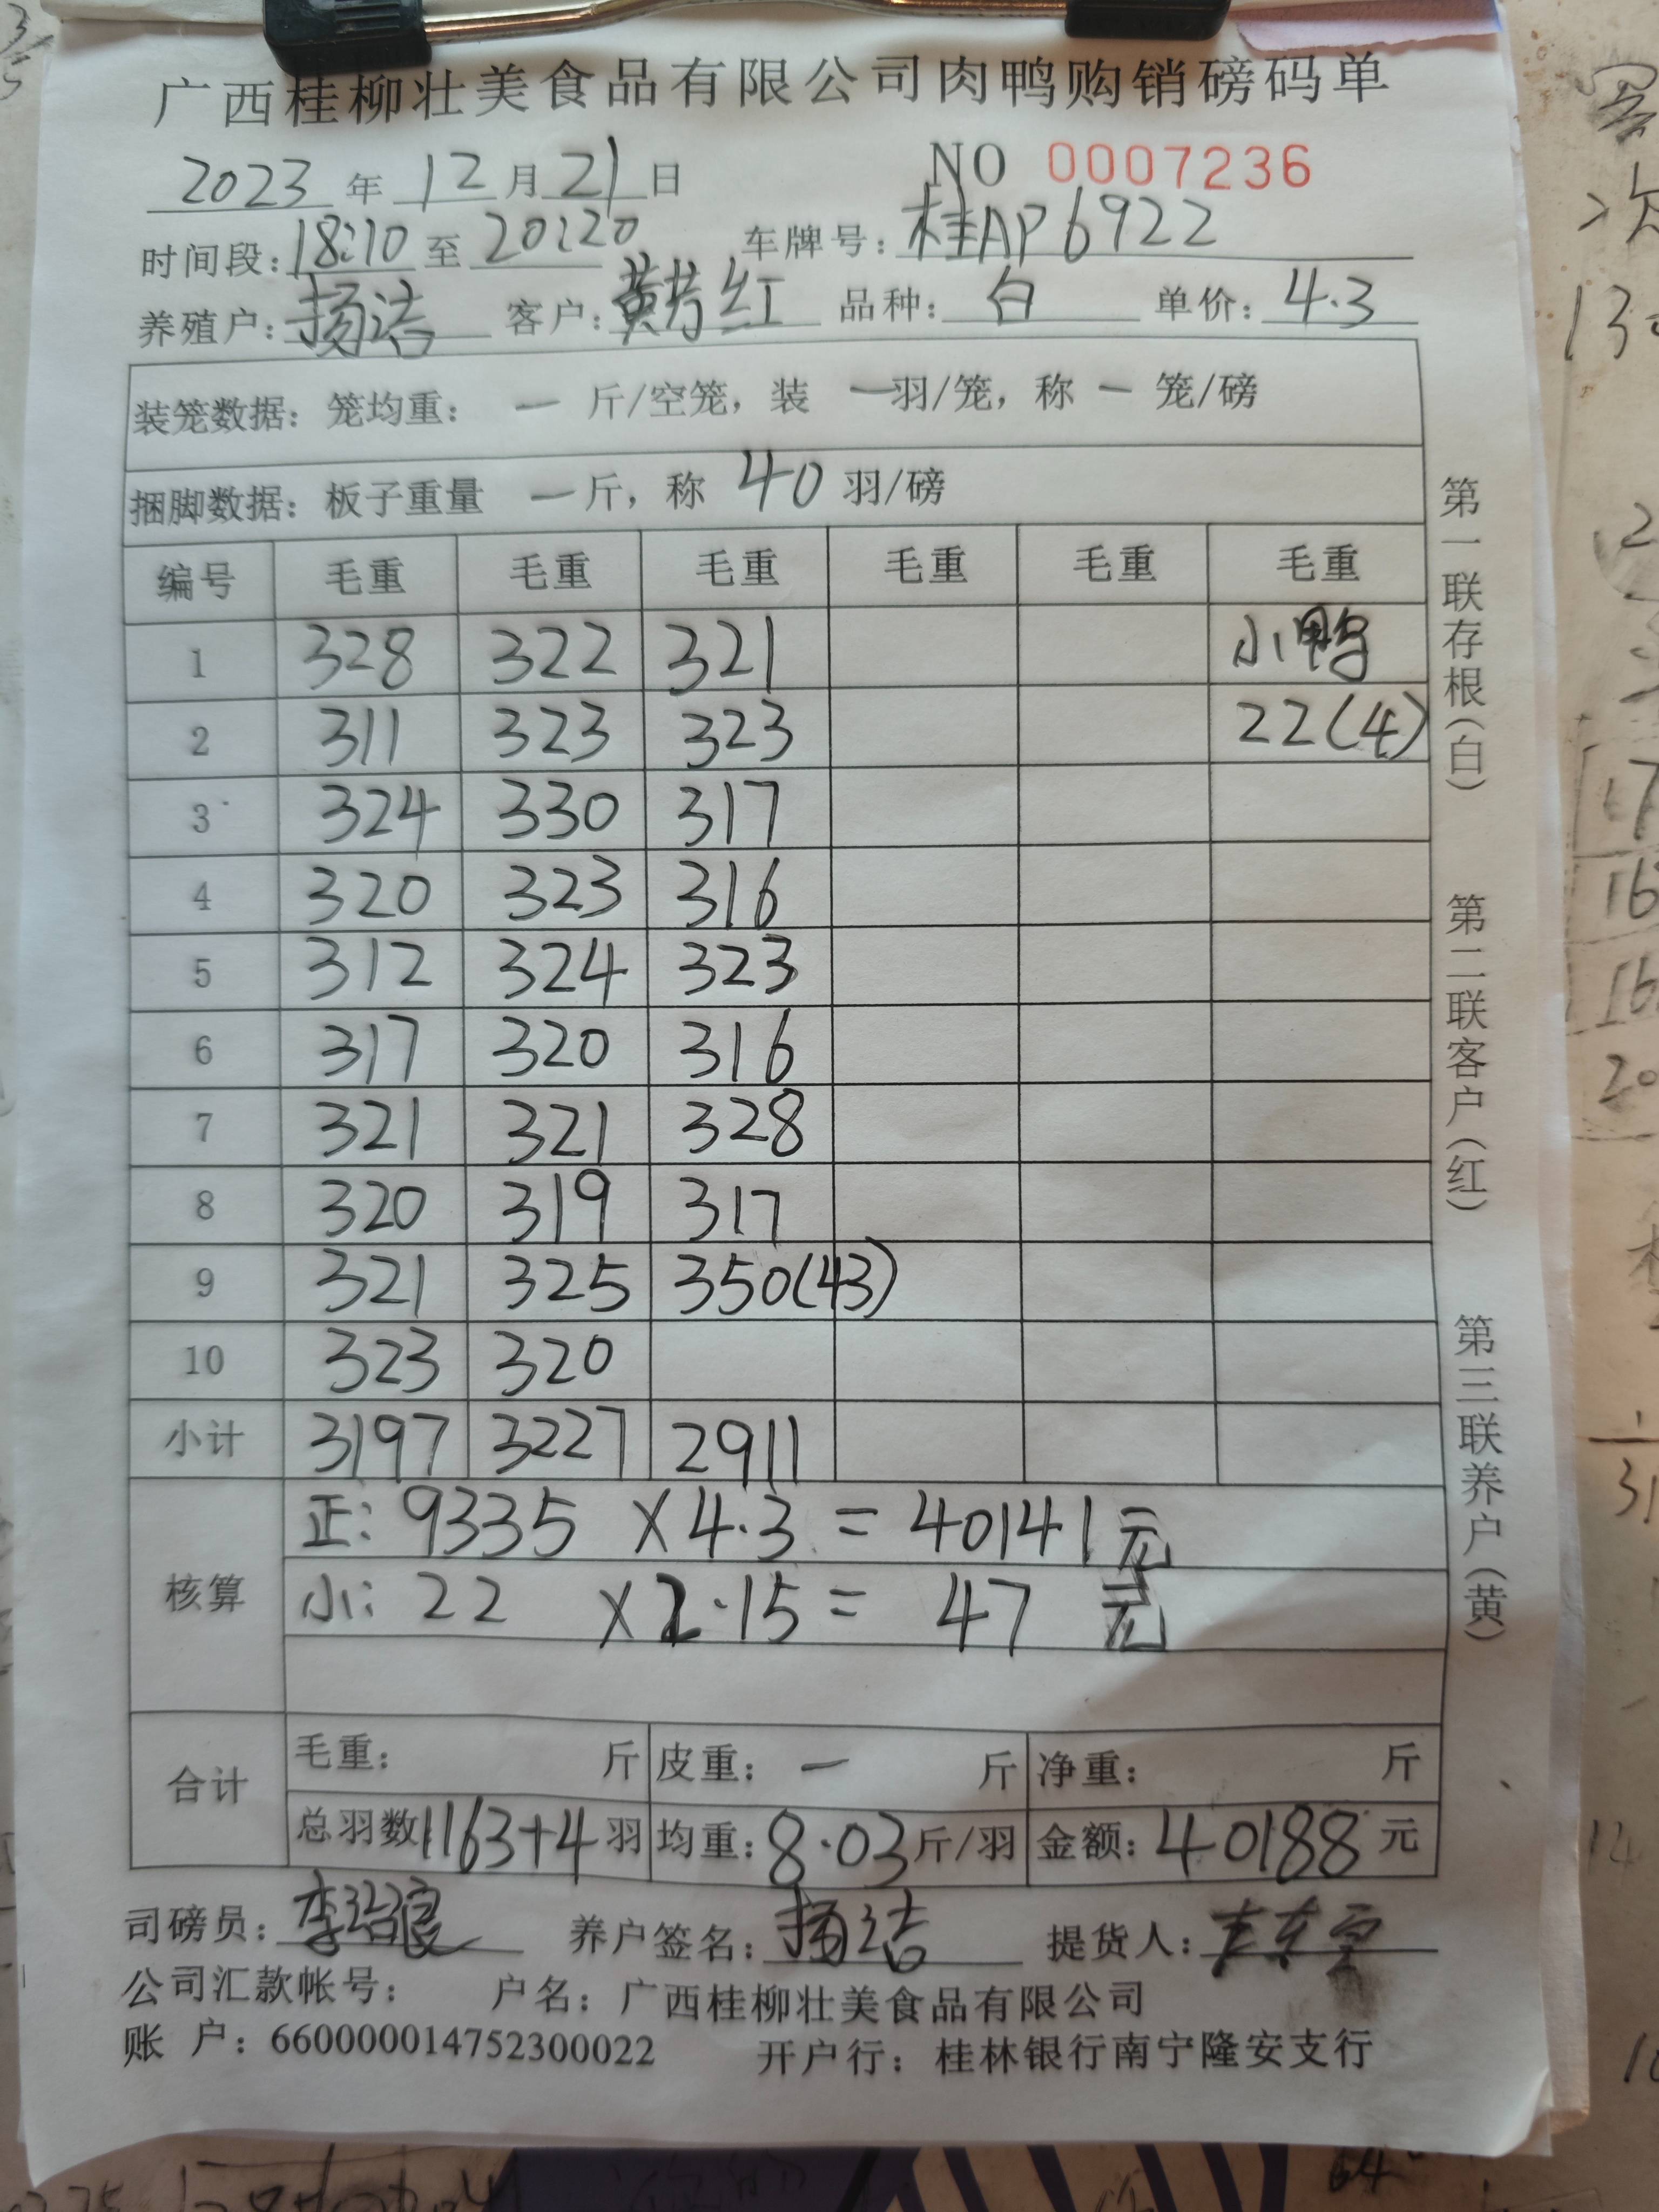 广西桂柳壮美食品有限公司肉鸭购销磅码单
2023 年 12 月 21 日 NO 0007236
时间段: 18:10 至 20:20 车牌号: 桂AP6922
养殖户: 杨洁 客户: 黄芳红 品种: 白 单价: 4.3
装笼数据: 笼均重: — 斤/空笼, 装 — 羽/笼, 称 — 笼/磅
捆脚数据: 板子重量 — 斤, 称 40 羽/磅
编号 毛重 毛重 毛重 毛重 毛重 毛重
1 328 322 321 小鸭
2 311 323 323 22(4)
3 324 330 317
4 320 323 316
5 312 324 323
6 317 320 316
7 321 321 328
8 320 319 317
9 321 325 350(43)
10 323 320
小计 3197 3227 2911
核算
正: 9335 ×4.3 = 40141元
小: 22 ×2.15 = 47 元
合计
毛重: 斤 皮重: — 斤 净重: 斤
总羽数: 1163+4 羽 均重: 8.03 斤/羽 金额: 40188 元
司磅员: 李 养户签名: 杨洁 提货人:
公司汇款帐号: 户名: 广西桂柳壮美食品有限公司
账 户: 660000014752300022 开户行: 桂林银行南宁隆安支行
第一联存根(白)
第二联客户(红)
第三联养户(黄)